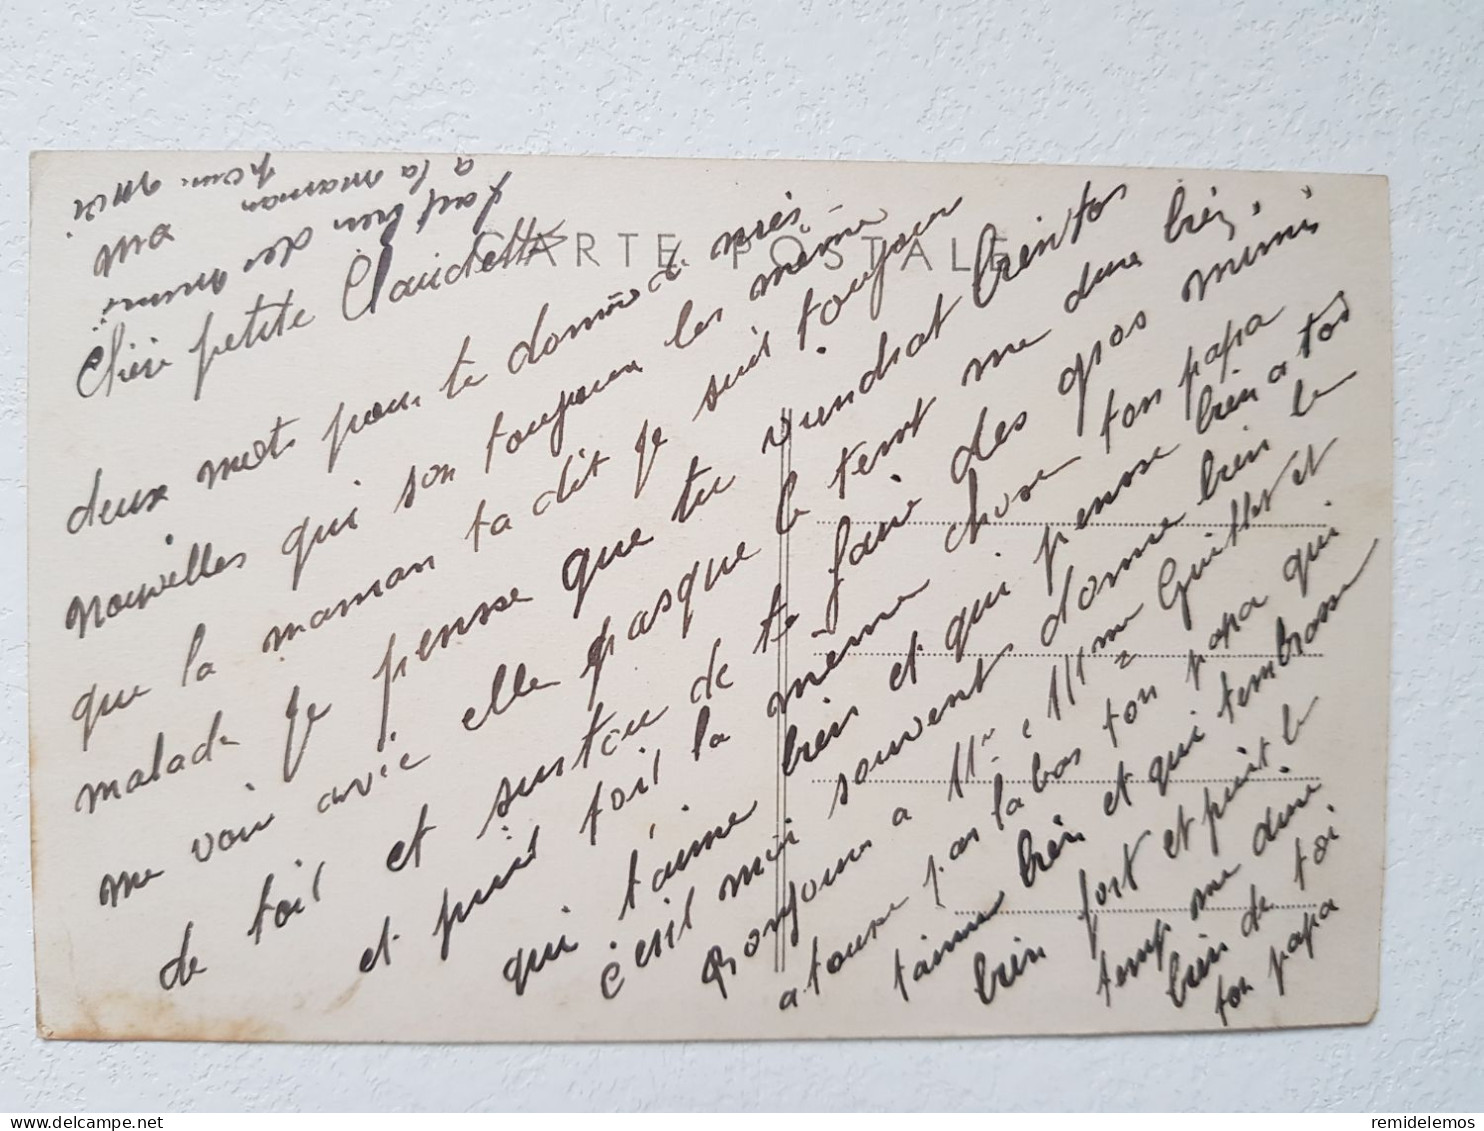 CARTE POSTALE
Ma
Chère petite Claudette
deux mots pour te donnée mes
nouvelles qui son toujours les même
que la maman ta dit je suis toujour
malade je pensse que tu viendrat bientos
me voir avec elle pasque le tent me dure bien,
de toil et surtou de te faire des gros mimis
et puis toil la même chose ton papa
qui t'aime bien et qui pensse bien a toi
c'esil moi souvent donne bien le
Bonjours a Mr, e Mme Guillet et
a toune pas la bas ton papa qui
taime bien et qui tembrasse
bien fort et puit le
temp me dure
bien de toi
ton papa
fait bien des mimi
a la maman
pour moi
remidelemos